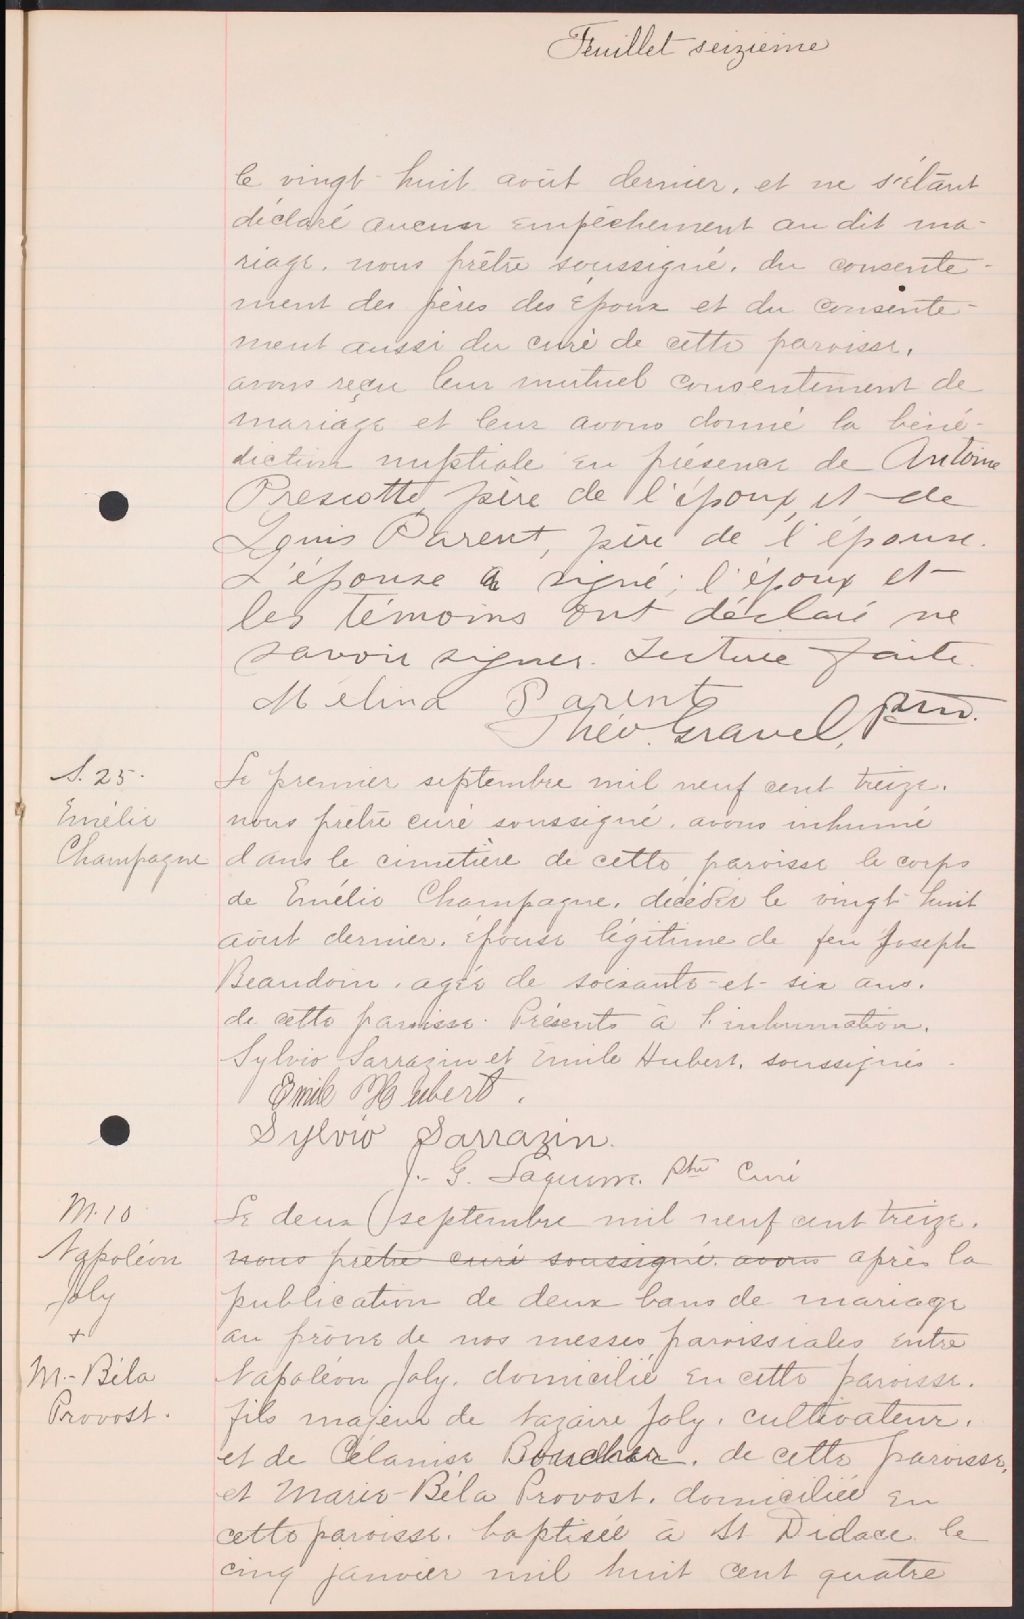 Feuillet seizième
le vingt-huit août dernier, et ne s'étant
déclaré aucun empêchement au dit ma-
riage, nous prêtre soussigné, du consente-
ment des pères des époux et du consente-
ment aussi du curé de cette paroisse,
avons reçu leur mutuel consentement de
mariage et leur avons donné la béné-
diction nuptiale en présence de Antoine
Prescotte, père de l'époux, et de
Louis Parent, père de l'épouse.
L'épouse a signé; l'époux et
les témoins ont déclaré ne
savoir signer. Lecture faite.
Mélina Parent
Théo. Gravel, Ptre.
S. 25.
Emélie
Champagne
Le premier septembre mil neuf cent treize,
nous prêtre curé soussigné, avons inhumé
dans le cimetière de cette paroisse le corps
de Emélie Champagne, décédée le vingt-huit
août dernier, épouse légitime de feu Joseph
Beaudoin, agée de soixante-et-six ans,
de cette paroisse. Présents à l'inhumation,
Sylvio Sarrazin et Emile Hubert, soussignés.
Emile Hubert.
Sylvio Sarrazin.
J. G. Ptre Curé
M. 10
Napoléon
Joly
+
M.-Béla
Provost.
Le deux septembre mil neuf cent treize,
nous prêtre curé soussigné, avons après la
publication de deux bans de mariage
au prône de nos messes paroissiales entre
Napoléon Joly, domicilié en cette paroisse,
fils majeur de Nazaire Joly, cultivateur,
et de Célanise Boucher, de cette paroisse,
et Marie-Béla Provost, domiciliée en
cette paroisse, baptisée à St Didace le
cinq janvier mil huit cent quatre